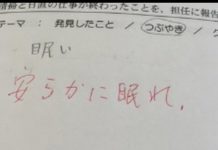 日直の仕事が終わったことを、担任に報告
テーマ : 発見したこと / つぶやき /
眠い
安らかに眠れ.